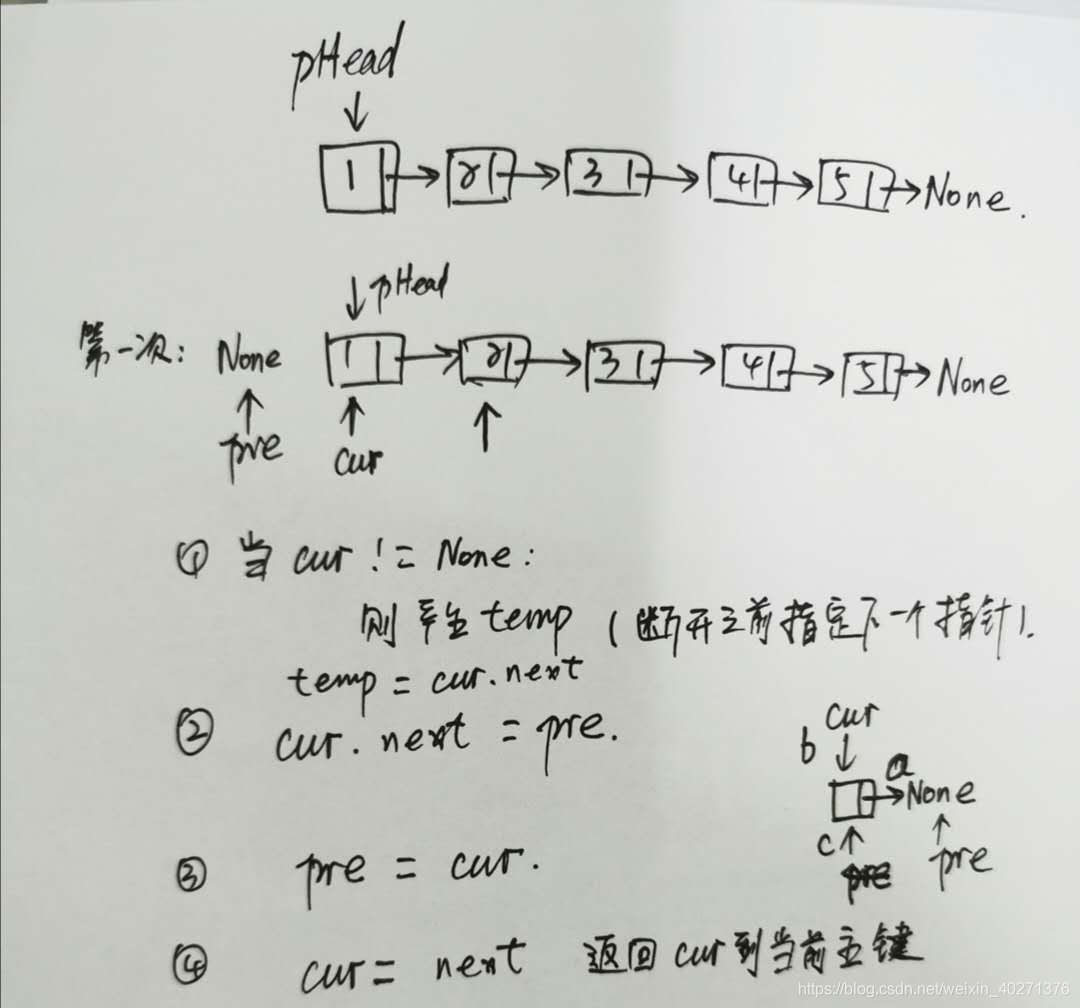 pHead
1 2 3 4 5 None.
pHead
第一次: None 1 2 3 4 5 None
pre cur
① 当 cur != None:
则 temp (断开之前指定下一个指针).
temp = cur.next
② cur.next = pre.
cur
b a
None
c
pre pre
③ pre = cur.
④ cur = next 返回 cur 到当前主键
https://blog.csdn.net/weixin_40271376